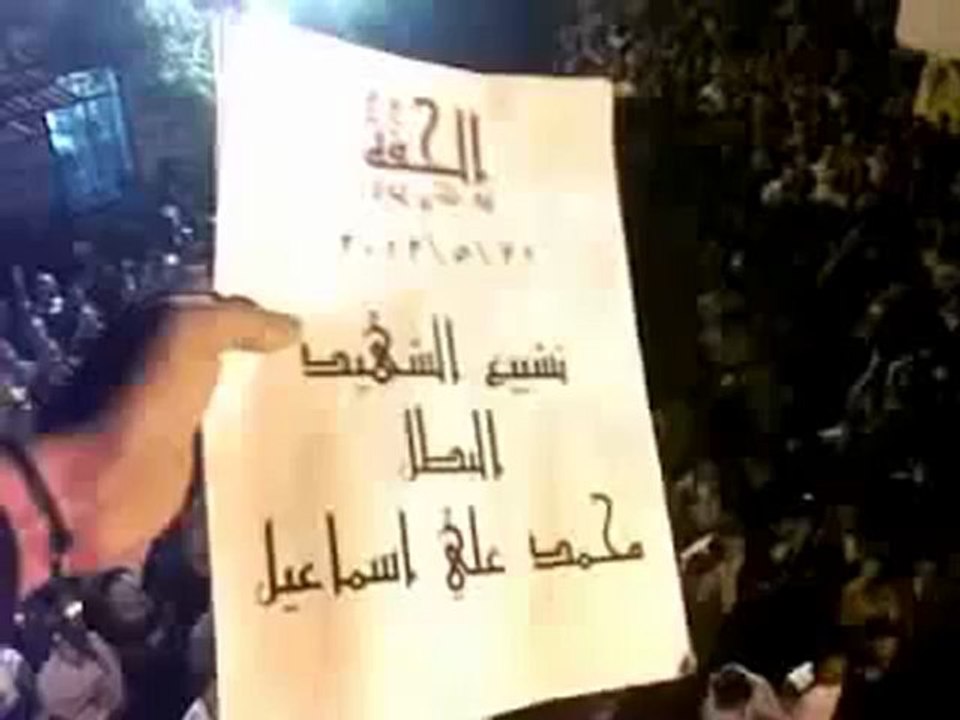 الحفة
تشييع الشهيد
البطل
محمد علي اسماعيل